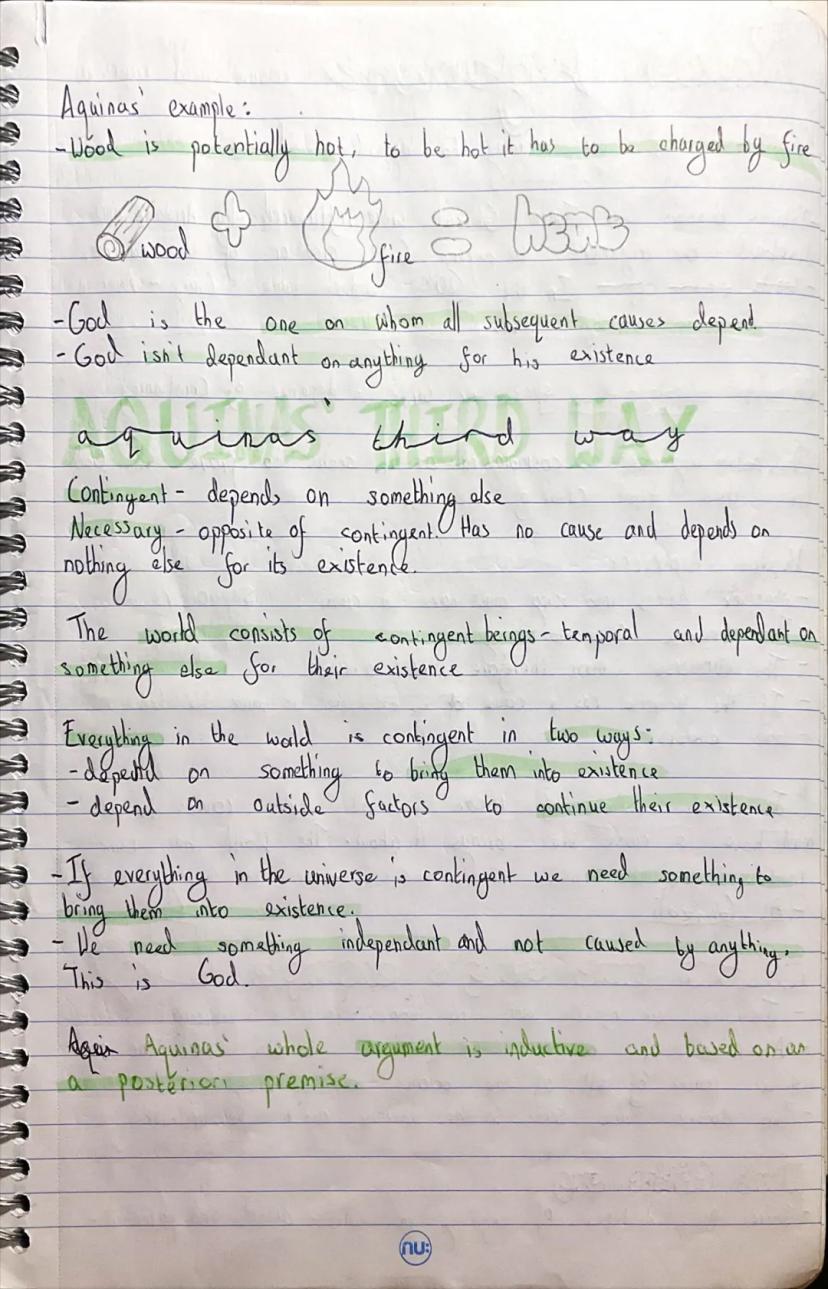 Aquinas' example:
-Wood is potentially hot, to be hot it has to be charged by fire
wood + fire = heat
-God is the one on whom all subsequent causes depend.
- God isn't dependant on anything for his existence
AQUINAS' THIRD WAY
aquinas' third way
Contingent - depends on something else
Necessary - opposite of contingent. Has no cause and depends on
nothing else for its existence.
The world consists of contingent beings - temporal and dependant on
something else for their existence
Everything in the world is contingent in two ways:
- depend on something to bring them into existence
- depend on outside factors to continue their existence
- If everything in the universe is contingent we need something to
bring them into existence.
- We need something independant and not caused by anything.
This is God.
Aquinas' whole argument is inductive and based on an
a posteriori premise.
nu: